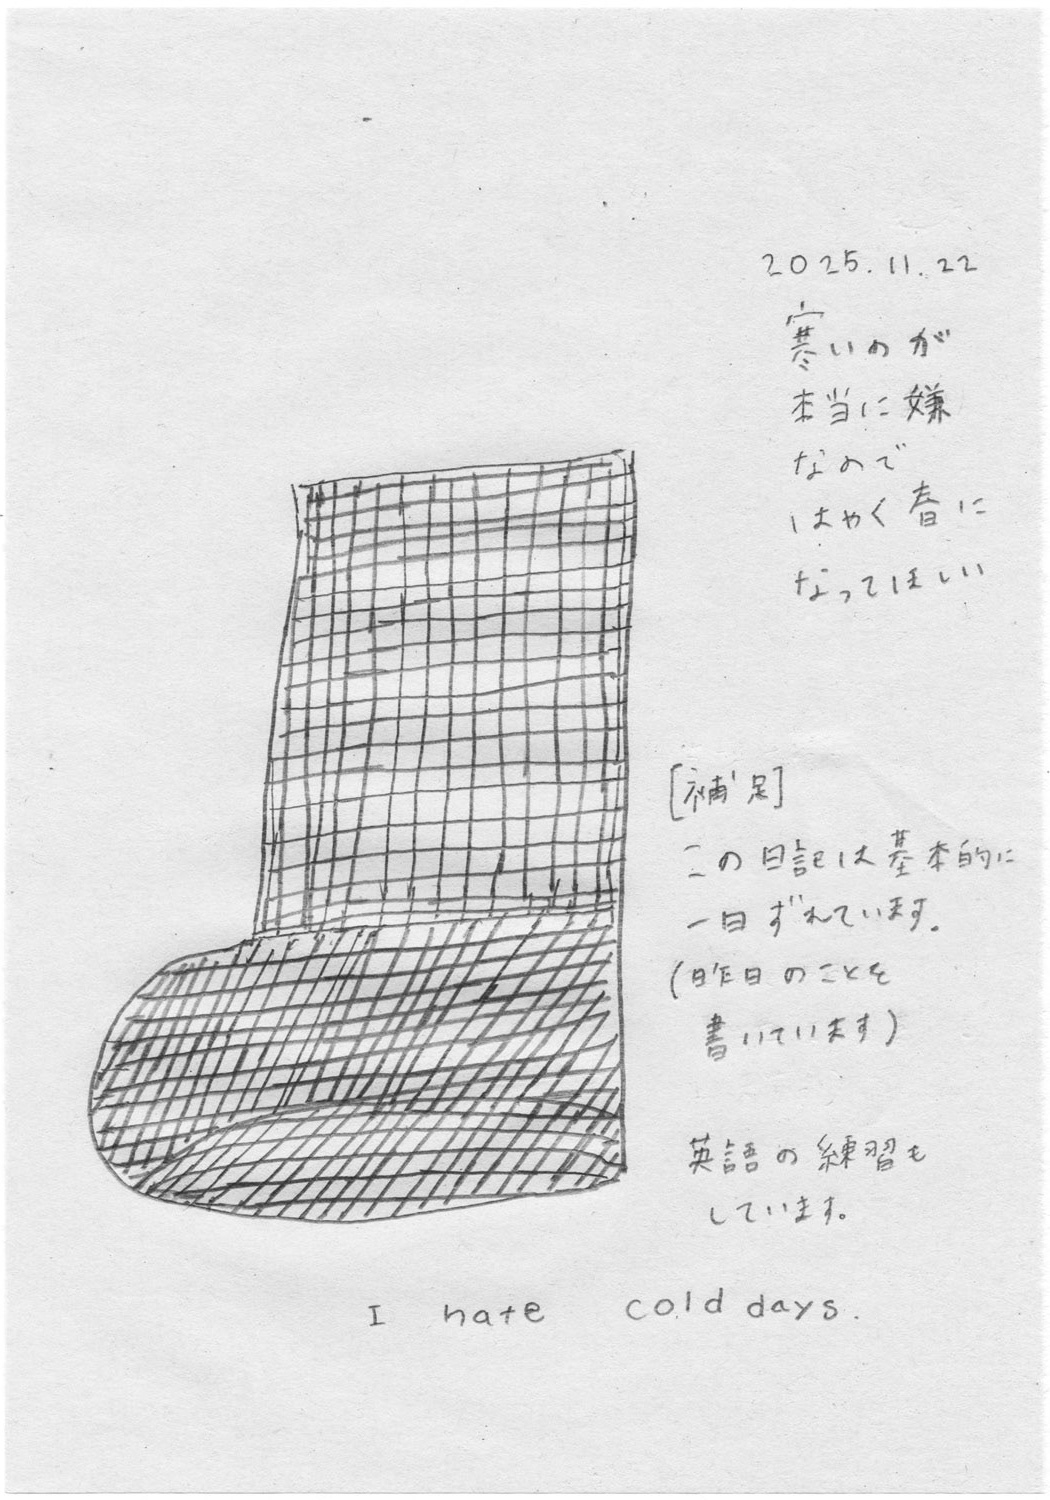 2025.11.22
寒いのが
本当に嫌
なので
はやく春に
なってほしい
[補足]
この日記は基本的に
一日ずれています。
(昨日のことを
書いています)
英語の練習も
しています。
I hate cold days.